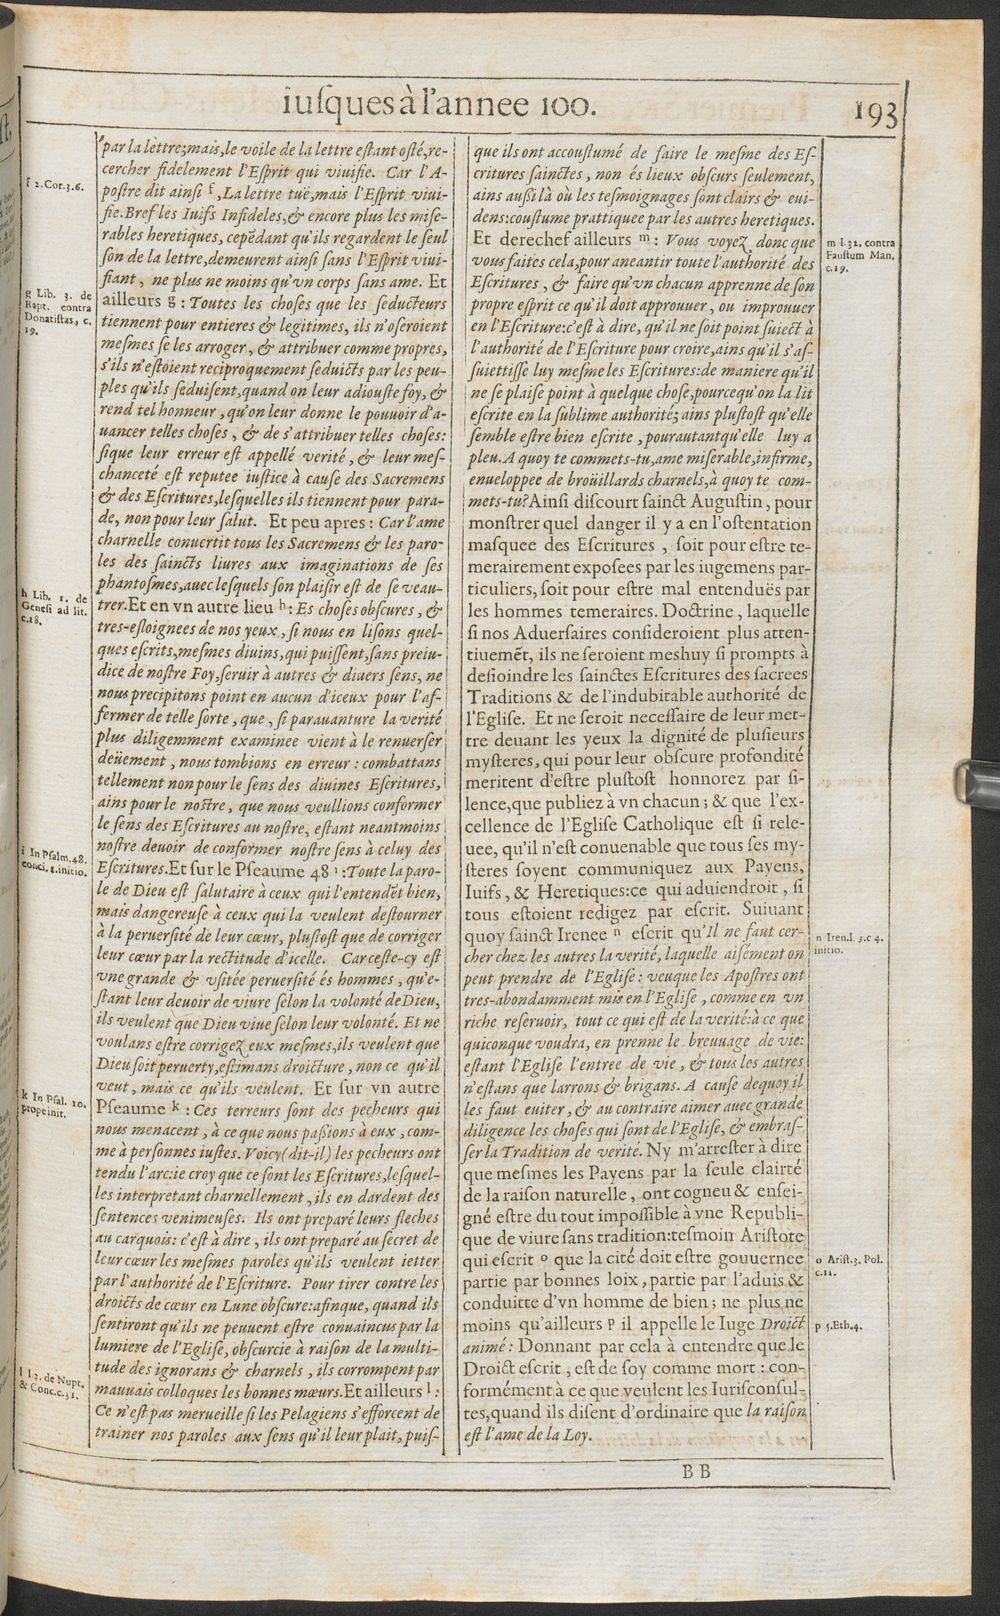 iuſques à l'annee 100.
193
par la lettre;mais,le voile de la lettre eſtant oſté,re-
cercher fidelement l'Eſprit qui viuifie. Car l'A-
poſtre dit ainſi f ,La lettre tuë,mais l'Eſprit viui-
fie.Bref les Iuifs Infideles,& encore plus les miſe-
rables heretiques, cepēdant qu'ils regardent le ſeul
ſon de la lettre,demeurent ainſi ſans l'Eſprit viui-
fiant, ne plus ne moins qu'vn corps ſans ame. Et
ailleurs g : Toutes les choſes que les ſeducteurs
tiennent pour entieres & legitimes, ils n'oſeroient
meſmes ſe les arroger, & attribuer comme propres,
s'ils n'eſtoient reciproquement ſeduicts par les peu-
ples qu'ils ſeduiſent,quand on leur adiouſte foy, &
rend tel honneur , qu'on leur donne le pouuoir d'a-
uancer telles choſes , & de s'attribuer telles choſes:
ſique leur erreur eſt appellé verité , & leur meſ-
chanceté eſt reputee iuſtice à cauſe des Sacremens
& des Eſcritures,leſquelles ils tiennent pour para-
de, non pour leur ſalut. Et peu apres : Car l'ame
charnelle conuertit tous les Sacremens & les paro-
les des ſaincts liures aux imaginations de ſes
phantoſmes,auec leſquels ſon plaiſir eſt de ſe veau-
trer.Et en vn autre lieu h : Es choſes obſcures , &
tres-eſloignees de nos yeux , ſi nous en liſons quel-
ques eſcrits,meſmes diuins,qui puiſſent,ſans preiu-
dice de noſtre Foy,ſeruir à autres & diuers ſens, ne
nous precipitons point en aucun d'iceux pour l'af-
fermer de telle ſorte , que , ſi parauanture la verité
plus diligemment examinee vient à le renuerſer
deüement , nous tombions en erreur : combattans
tellement non pour le ſens des diuines Eſcritures,
ains pour le noſtre , que nous veullions conformer
le ſens des Eſcritures au noſtre, eſtant neantmoins
noſtre deuoir de conformer noſtre ſens à celuy des
Eſcritures.Et ſur le Pſeaume 48 i :Toute la paro-
le de Dieu eſt ſalutaire à ceux qui l'entendēt bien,
mais dangereuſe à ceux qui la veulent deſtourner
à la peruerſité de leur cœur, pluſtoſt que de corriger
leur cœur par la rectitude d'icelle. Car ceſte-cy eſt
vne grande & vſitée peruerſité és hommes , qu'e-
ſtant leur deuoir de viure ſelon la volonté de Dieu,
ils veulent que Dieu viue ſelon leur volonté. Et ne
voulans eſtre corrigez eux meſmes,ils veulent que
Dieu ſoit peruerty,eſtimans droicture , non ce qu'il
veut , mais ce qu'ils veulent. Et ſur vn autre
Pſeaume k : Ces terreurs ſont des pecheurs qui
nous menacent , à ce que nous paſſions à eux , com-
me à perſonnes iuſtes. Voicy(dit-il) les pecheurs ont
tendu l'arc:ie croy que ce ſont les Eſcritures,leſquel-
les interpretant charnellement , ils en dardent des
ſentences venimeuſes. Ils ont preparé leurs fleches
au carquois: c'eſt à dire , ils ont preparé au ſecret de
leur cœur les meſmes paroles qu'ils veulent ietter
par l'authorité de l'Eſcriture. Pour tirer contre les
droicts de cœur en Lune obſcure:afinque, quand ils
ſentiront qu'ils ne peuuent eſtre conuaincus par la
lumiere de l'Egliſe, obſcurcie à raiſon de la multi-
tude des ignorans & charnels , ils corrompent par
mauuais colloques les bonnes mœurs.Et ailleurs l :
Ce n'eſt pas merueille ſi les Pelagiens s'efforcent de
trainer nos paroles aux ſens qu'il leur plait, puiſ-
f 2.Cor.3.6.
g Lib. 3. de
Bapt. contra
Donatiſtas, c.
19.
h Lib. 1. de
Geneſi ad lit.
c.18.
i In Pſalm.48.
conci.1.initio.
k In Pſal. 10.
prope init.
l l.2. de Nupt.
& Conc.c.31.
que ils ont accouſtumé de faire le meſme des Eſ-
critures ſainctes , non és lieux obſcurs ſeulement,
ains auſſi là où les teſmoignages ſont clairs & eui-
dens:couſtume prattiquee par les autres heretiques.
Et derechef ailleurs m : Vous voyez donc que
vous faites cela,pour aneantir toute l'authorité des
Eſcritures , & faire qu'vn chacun apprenne de ſon
propre eſprit ce qu'il doit approuuer , ou improuuer
en l'Eſcriture:c'eſt à dire, qu'il ne ſoit point ſuiect à
l'authorité de l'Eſcriture pour croire,ains qu'il s'aſ-
ſuiettiſſe luy meſme les Eſcritures:de maniere qu'il
ne ſe plaiſe point à quelque choſe,pourcequ'on la lit
eſcrite en la ſublime authorité; ains pluſtoſt qu'elle
ſemble eſtre bien eſcrite , pourautant qu'elle luy a
pleu. A quoy te commets-tu,ame miſerable,infirme,
enueloppee de broüillards charnels,à quoy te com-
mets-tu? Ainſi diſcourt ſainct Auguſtin , pour
monſtrer quel danger il y a en l'oſtentation
maſquee des Eſcritures , ſoit pour eſtre te-
merairement expoſees par les iugemens par-
ticuliers, ſoit pour eſtre mal entenduës par
les hommes temeraires. Doctrine , laquelle
ſi nos Aduerſaires conſideroient plus atten-
tiuemēt, ils ne ſeroient meshuy ſi prompts à
deſioindre les ſainctes Eſcritures des ſacrees
Traditions & de l'indubitable authorité de
l'Egliſe. Et ne ſeroit neceſſaire de leur met-
tre deuant les yeux la dignité de pluſieurs
myſteres, qui pour leur obſcure profondité
meritent d'eſtre pluſtoſt honnorez par ſi-
lence,que publiez à vn chacun ; & que l'ex-
cellence de l'Egliſe Catholique eſt ſi rele-
uee, qu'il n'eſt conuenable que tous ſes my-
ſteres ſoyent communiquez aux Payens,
Iuifs , & Heretiques:ce qui aduiendroit , ſi
tous eſtoient redigez par eſcrit. Suiuant
quoy ſainct Irenee n eſcrit qu'Il ne faut cer-
cher chez les autres la verité, laquelle aiſément on
peut prendre de l'Egliſe : veuque les Apoſtres ont
tres-abondamment mis en l'Egliſe , comme en vn
riche reſeruoir, tout ce qui eſt de la verité:à ce que
quiconque voudra, en prenne le breuuage de vie:
eſtant l'Egliſe l'entree de vie , & tous les autres
n'eſtans que larrons & brigans. A cauſe dequoy il
les faut euiter , & au contraire aimer auec grande
diligence les choſes qui ſont de l'Egliſe, & embraſ-
ſer la Tradition de verité. Ny m'arreſter à dire
que meſmes les Payens par la ſeule clairté
de la raiſon naturelle , ont cogneu & enſei-
gné eſtre du tout impoſſible à vne Republi-
que de viure ſans tradition:teſmoin Ariſtote
qui eſcrit o que la cité doit eſtre gouuernee
partie par bonnes loix , partie par l'aduis &
conduitte d'vn homme de bien ; ne plus ne
moins qu'ailleurs p il appelle le Iuge Droict
animé : Donnant par cela à entendre que le
Droict eſcrit , eſt de ſoy comme mort : con-
formément à ce que veulent les Iuriſconſul-
tes,quand ils diſent d'ordinaire que la raiſon
eſt l'ame de la Loy.
m l.32. contra
Fauſtum Man.
c.19.
n Iren.l. 3.c 4.
initio.
o Ariſt.3. Pol.
c.11.
p 5.Eth.4.
BB